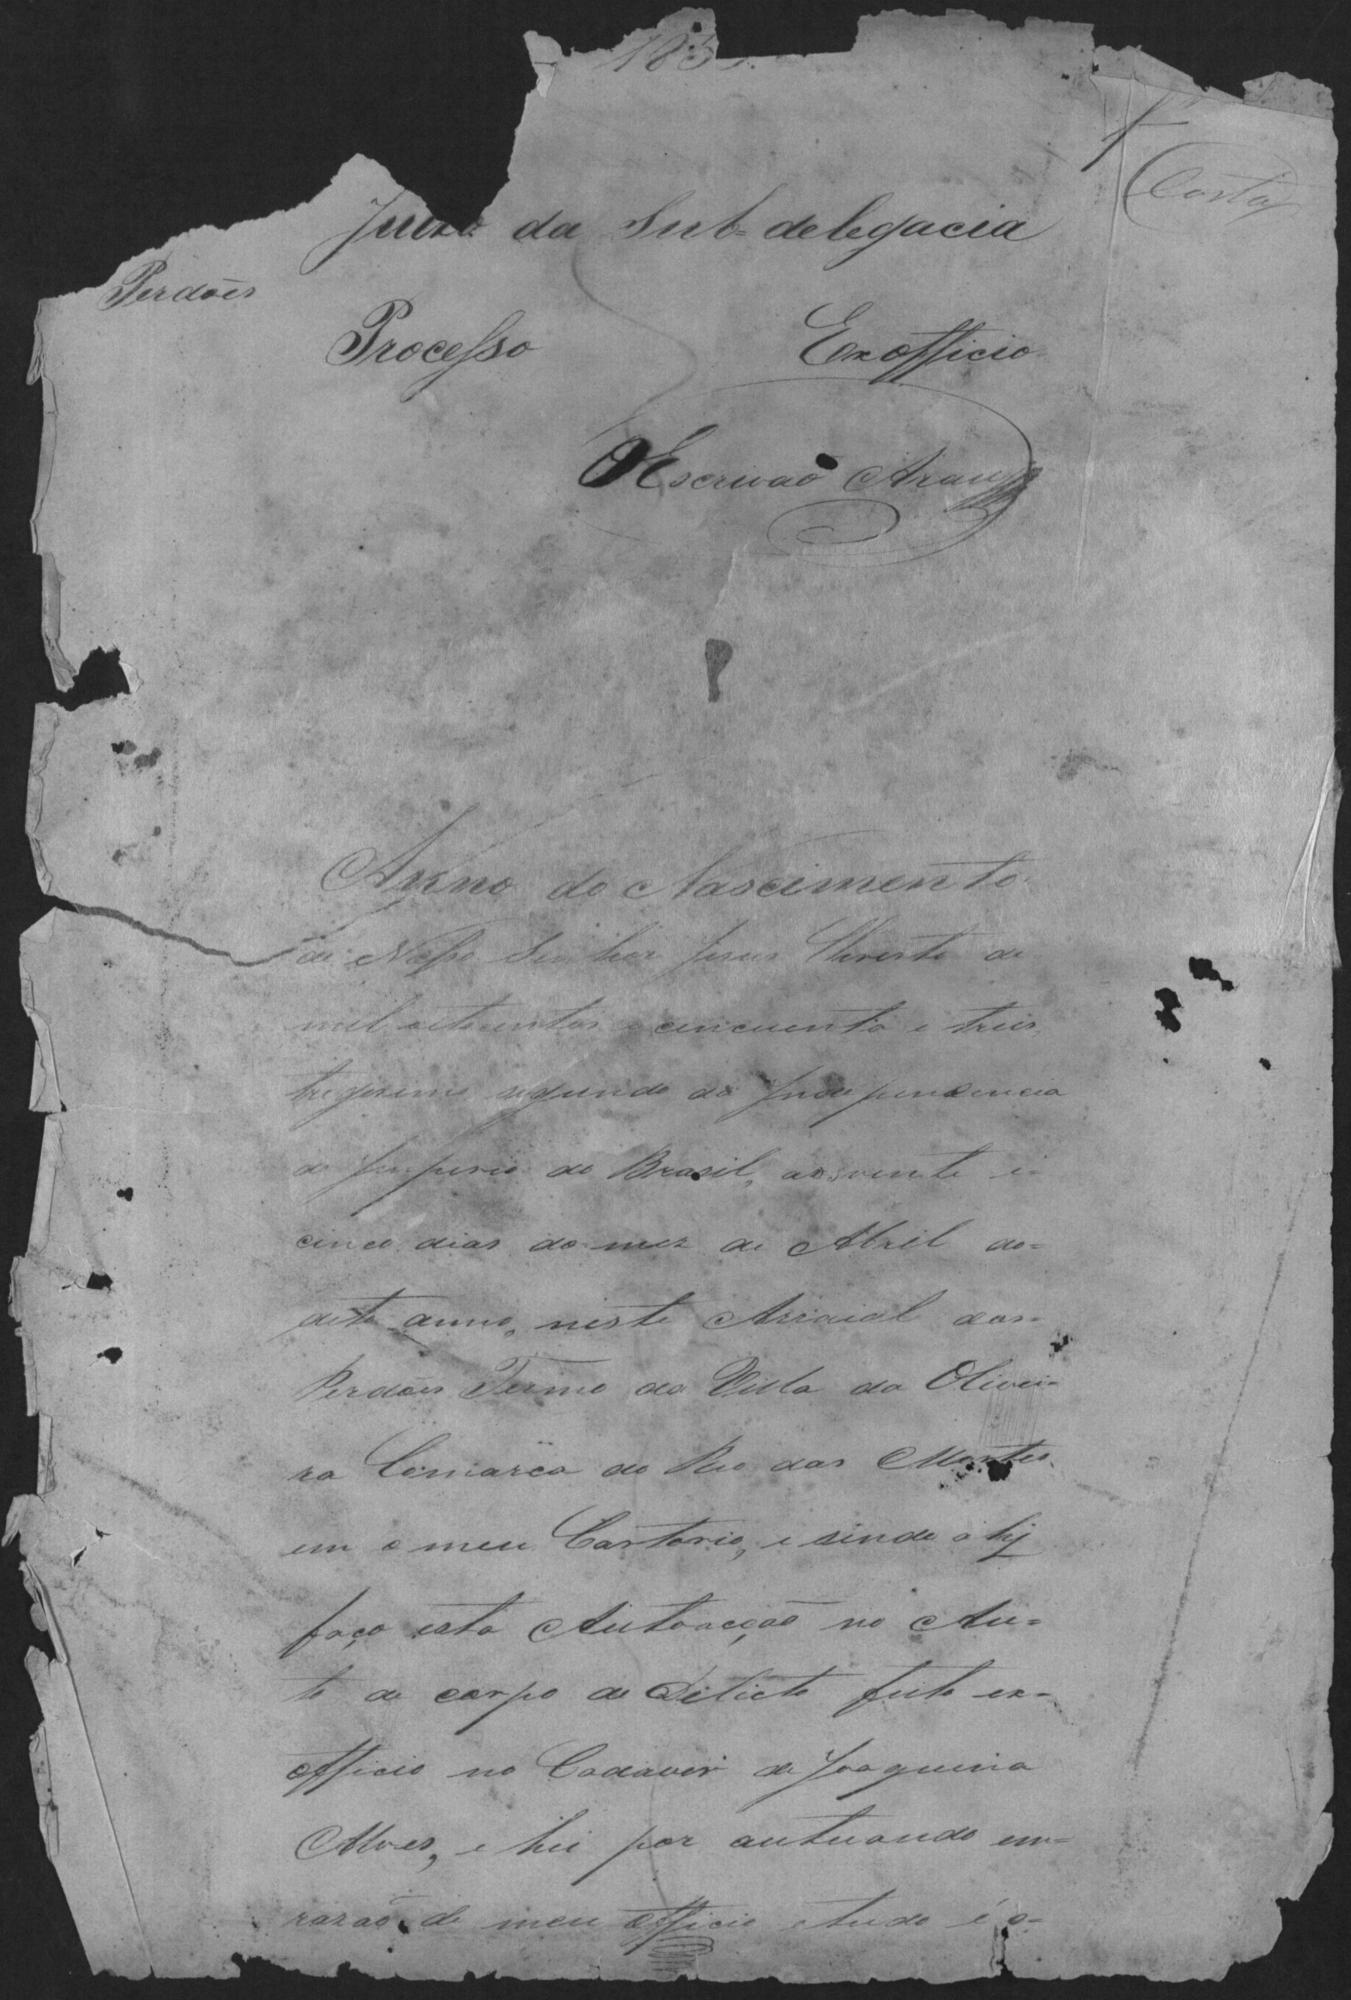 185
Costa
Juizo da Sub=delegacia
Perdões
Processo Exofficio
O Escrivaõ Araujo
Anno do Nascimento
de Nosso Senhor Jesus Christo de
mil oitocentos e cincuenta e treis
trigesimo segundo da Independencia
do Imperio do Brasil, aos vente e
cinco dias do mez de Abril do=
dito anno, neste Arraial dos=
Perdões Termo da Villa da Olivei=
ra Comarca do Rio das Mortes
em o meu Cartorio, e sendo ahy
faço esta Autoacçaõ no Au=
to de corpo de Delicto feito ex=
officio no Cadaver de Joaquina
Alves, e hei por autuando em=
razaõ de meu officio e tudo é o=